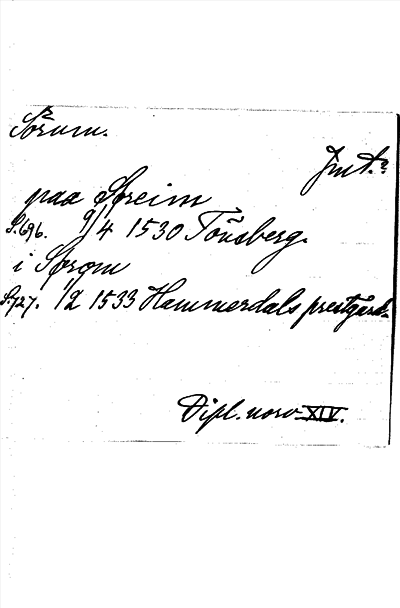 Sørum.
Jmt.?
paa Søreim
S.696. 9/4 1530 Tönsberg.
i Sørom
S.727. 1/2 1533 Hammerdals prestgård.
Dipl. norv. XIV.